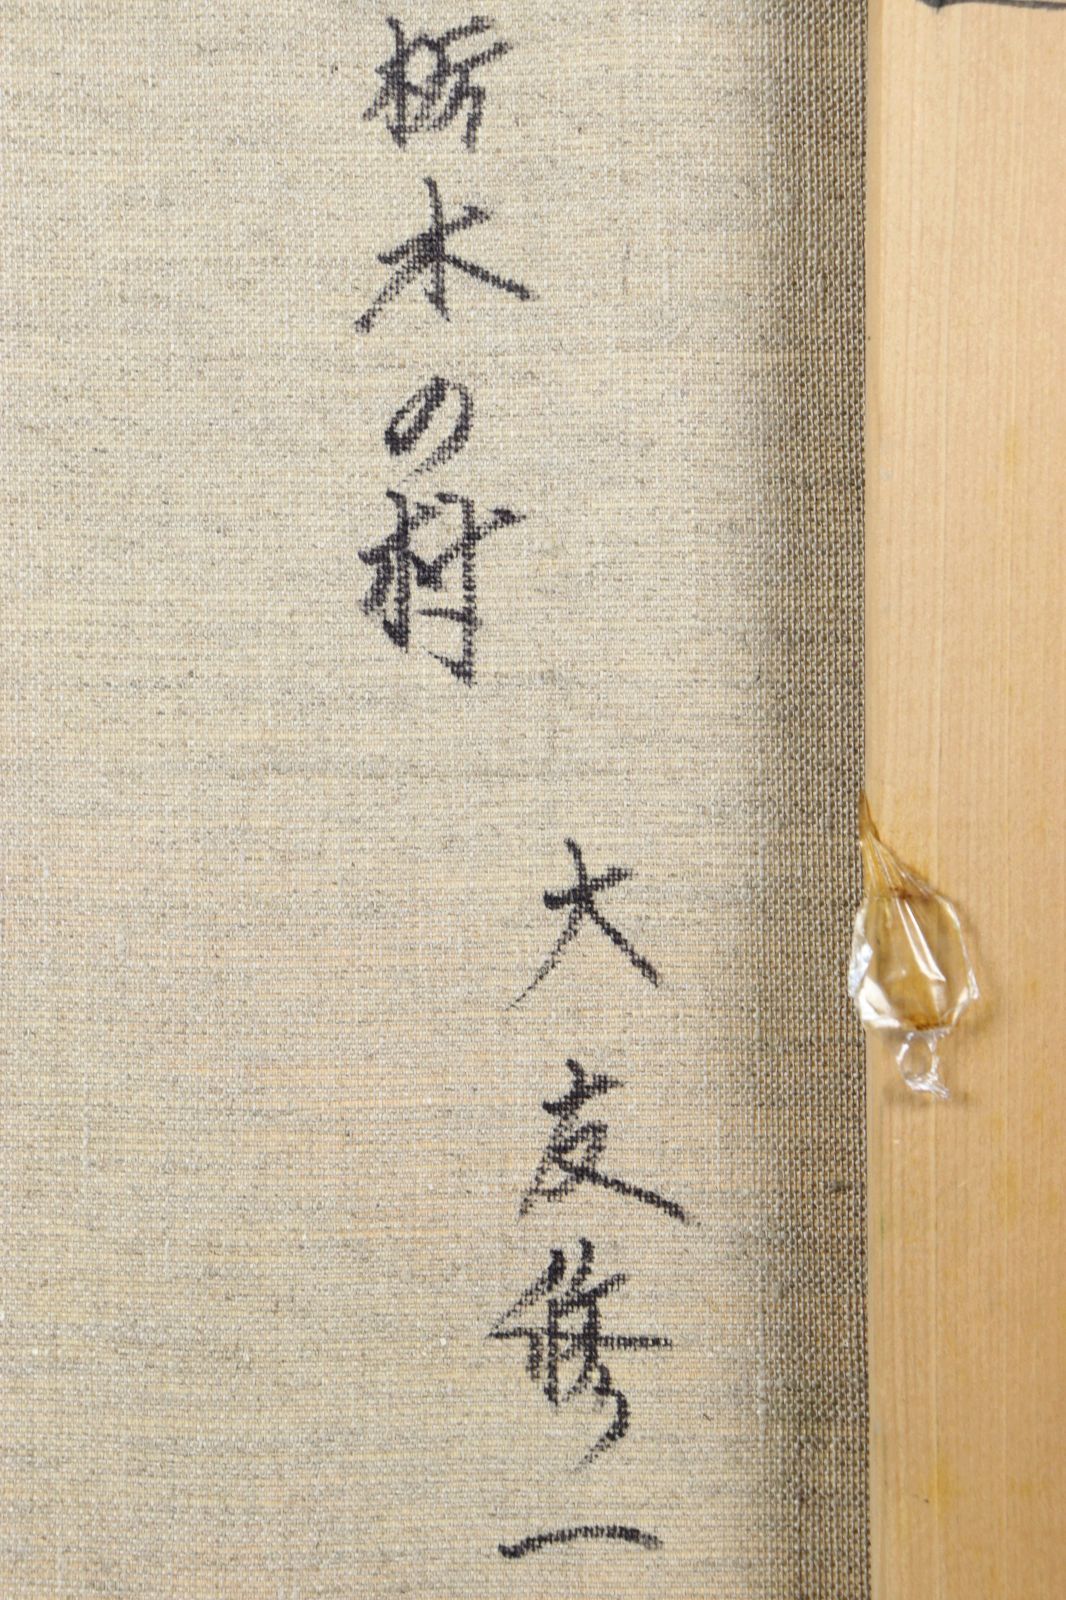 栃木の村
大友 一